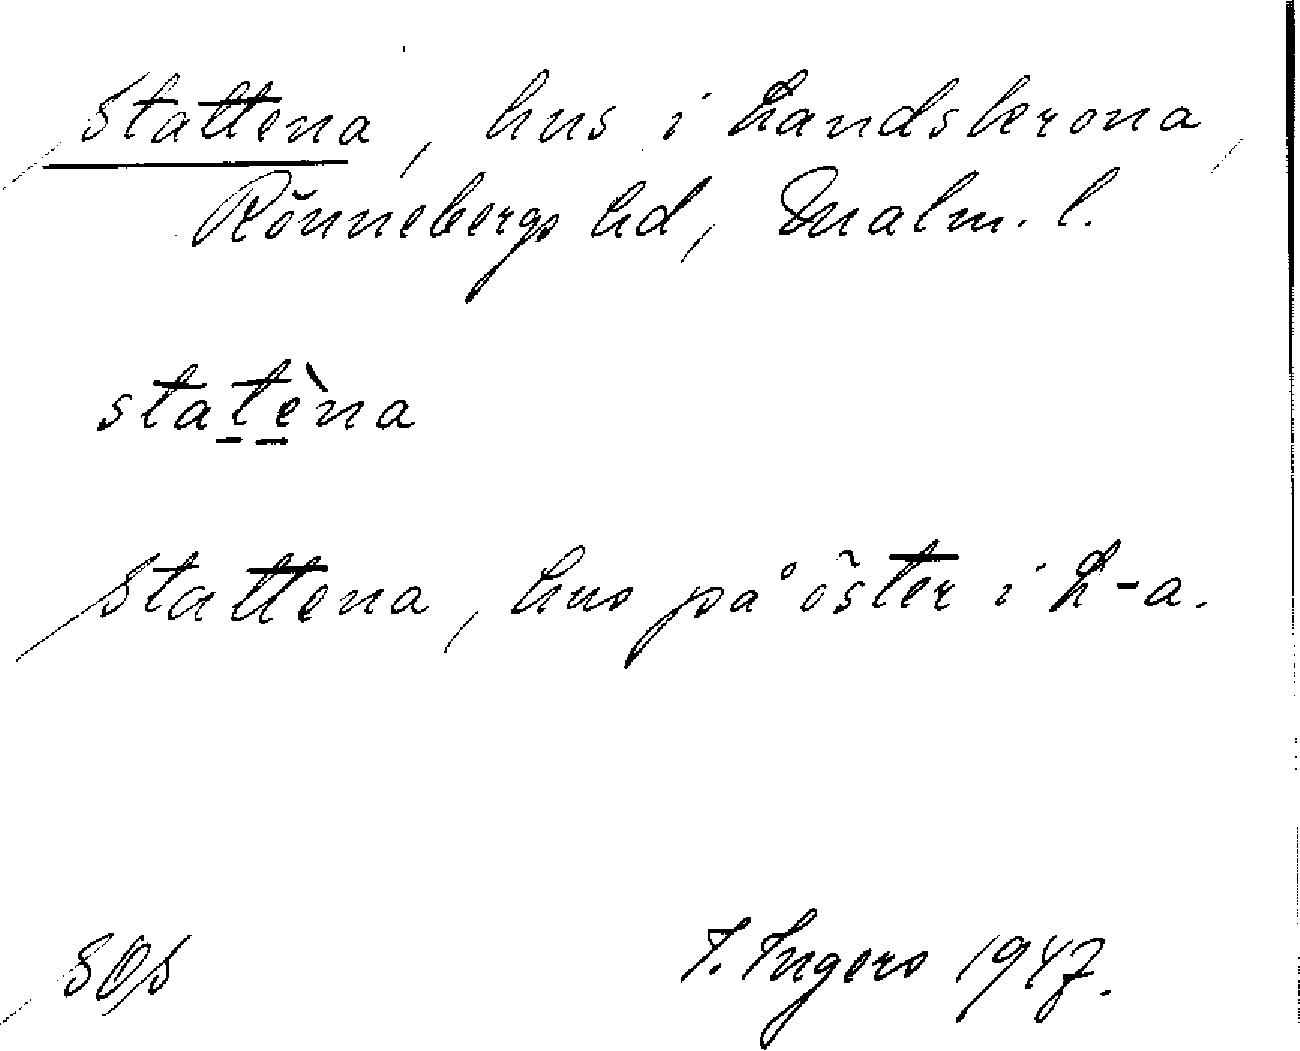 Stattena, hus i Landskrona,
Rönnebergs hd, Malm. l.
statèna
Stattena, hus på öster i L-a.
SOS
I. Ingers 1947.